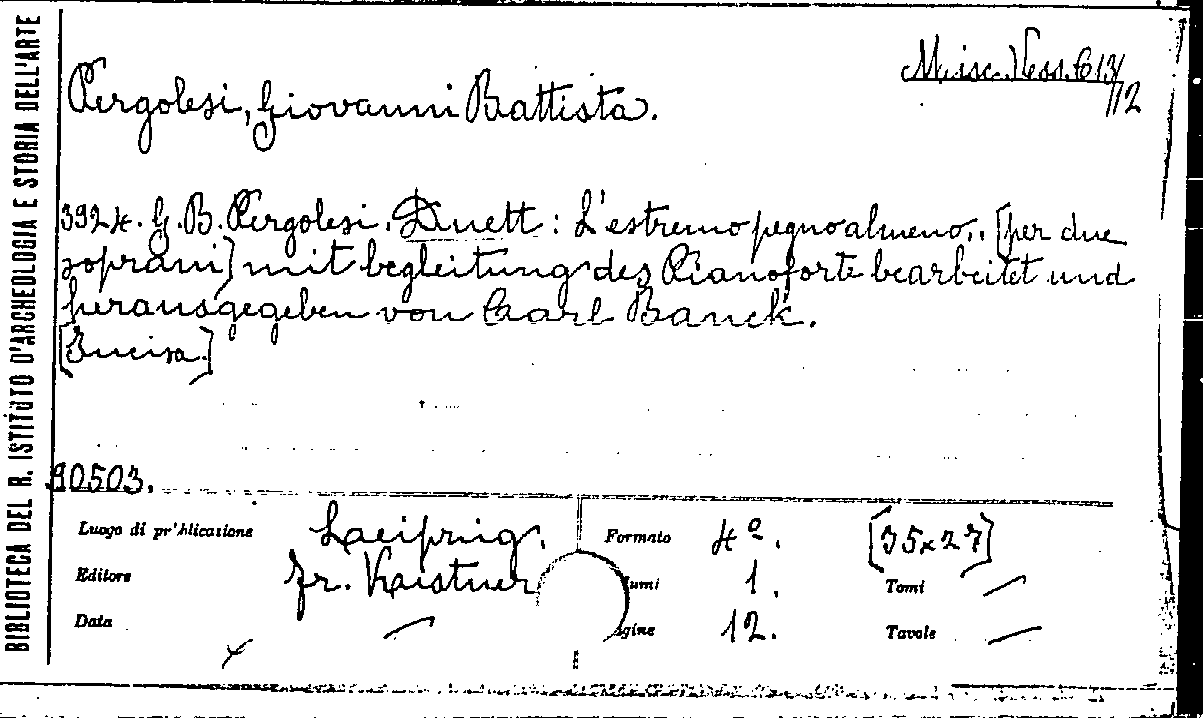 BIBLIOTECA DEL R. ISTITUTO D'ARCHEOLOGIA E STORIA DELL'ARTE
Misc. Vess. C 13/12
Pergolesi, Giovanni Battista.
3924. G. B. Pergolesi. Duett: L'estremo pegno almeno.. [per due
soprani] mit begleitung des Pianoforte bearbeitet und
herausgegeben von Carl Banck.
[Incisa.]
80503.
Luogo di pubblicazione Laeipzig. Formato 4º. [35x27]
Editore Fr. Kistner umi 1. Tomi —
Data — gine 12. Tavole —